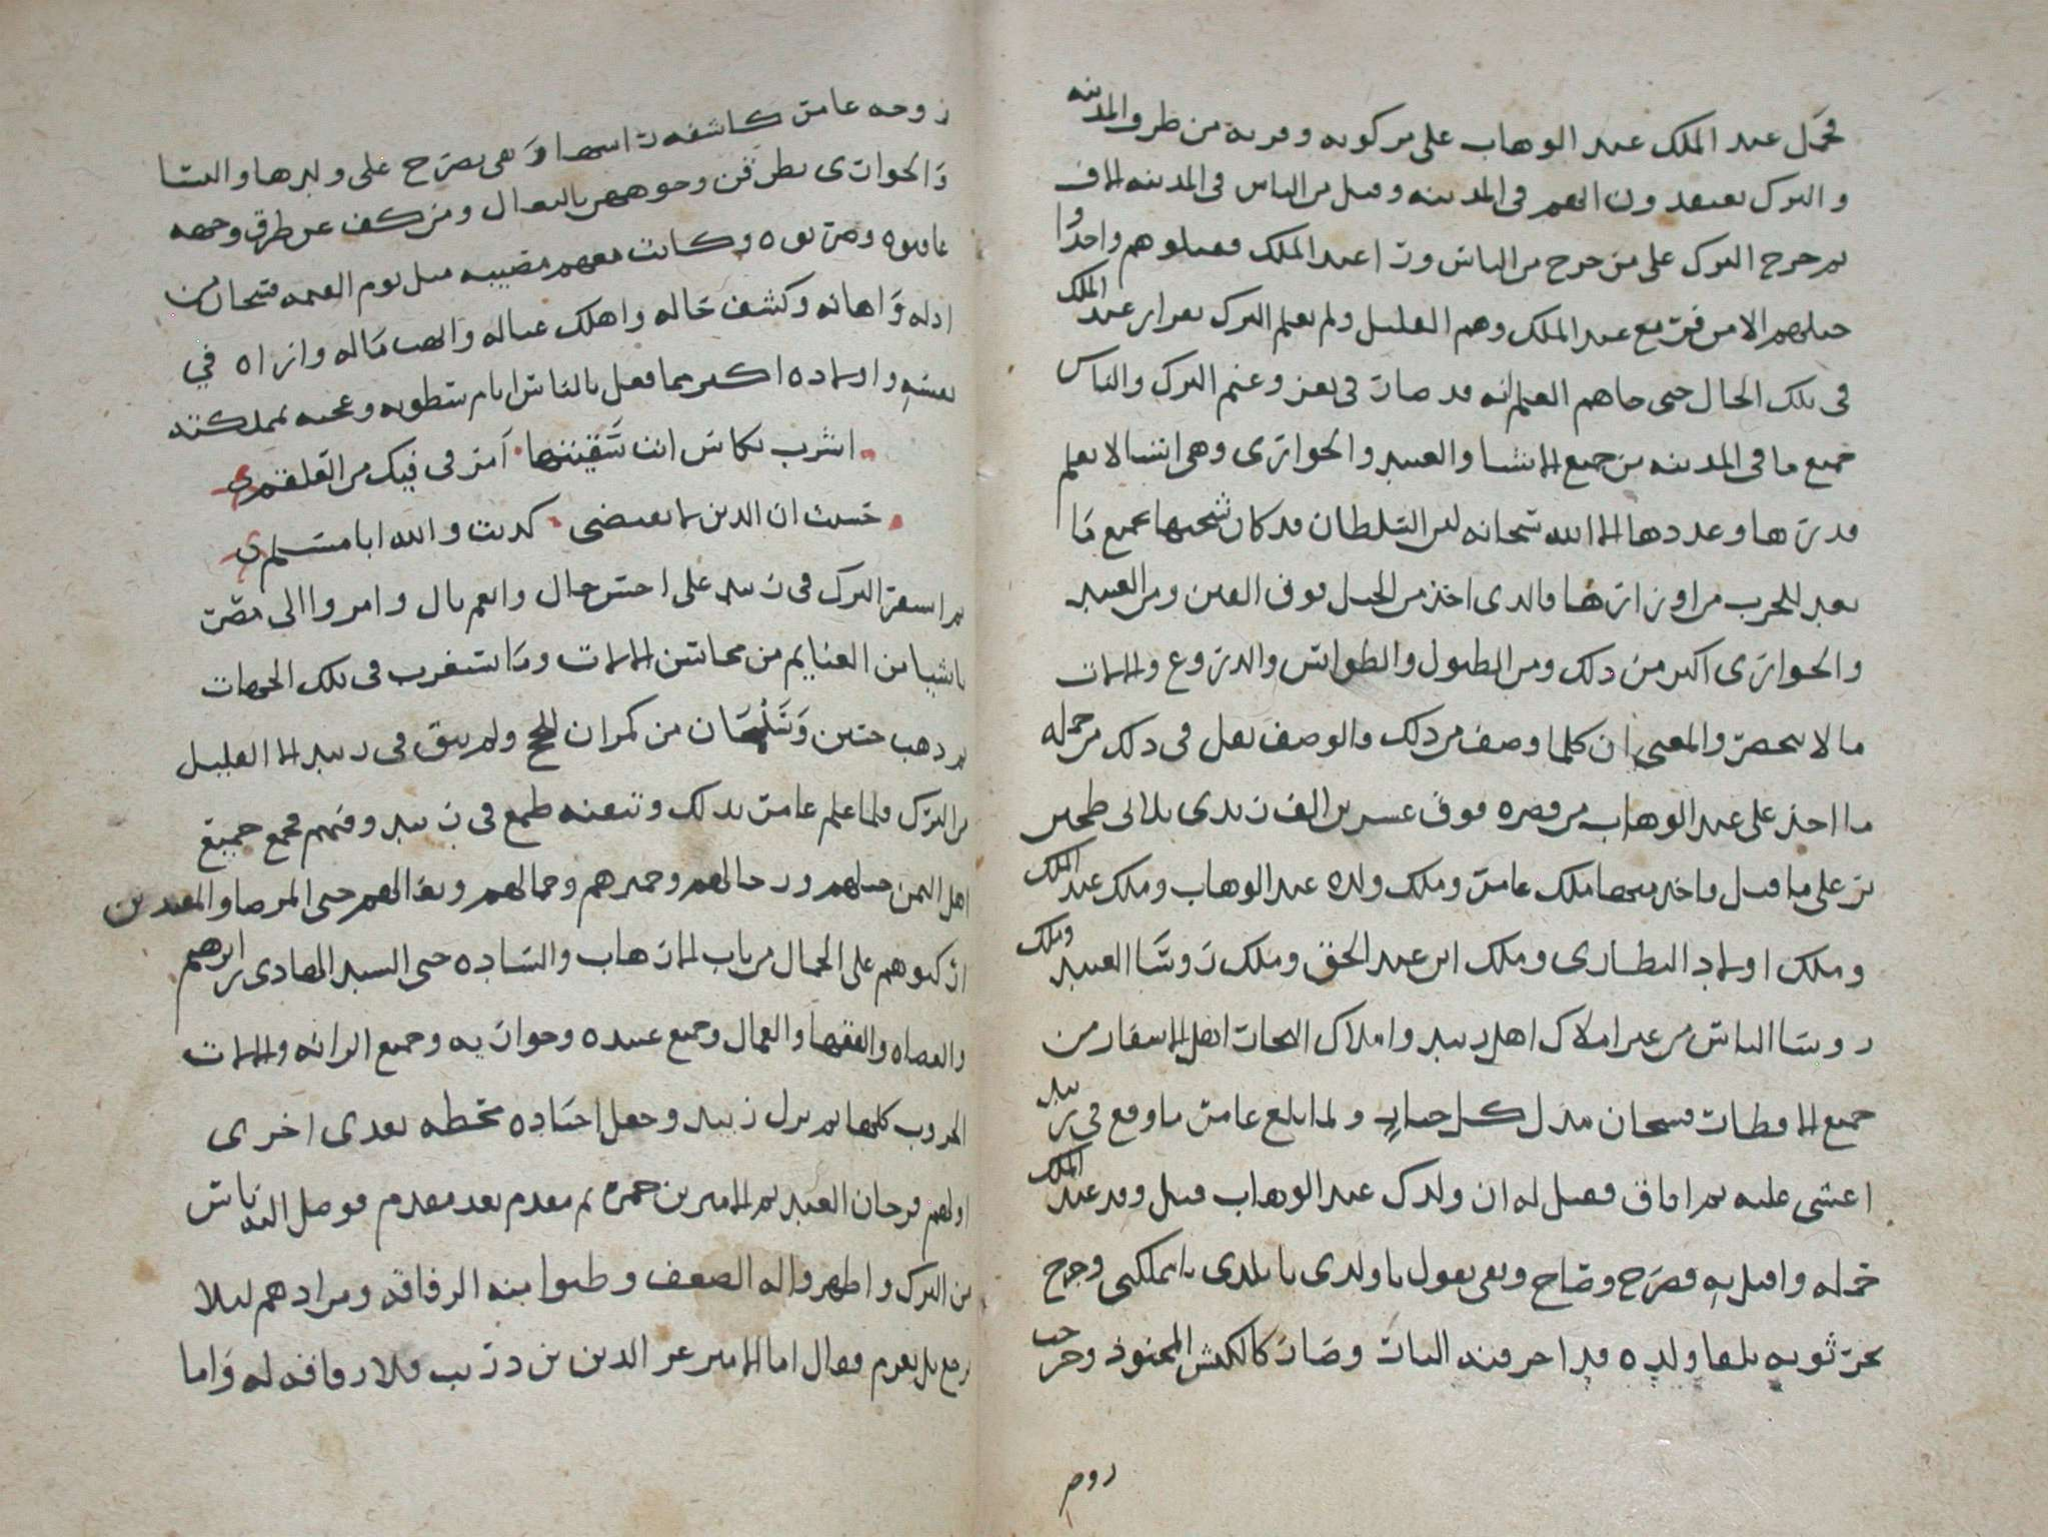 فحمل عبد الملك عبد الوهاب على مركوبه وقربه من طرف المدينه
والترك يعتقدون انهم في المدينه وقتل من الناس في المدينه الاف
ثم خرج الترك على من خرج من الناس ورا عبد الملك فقتلوهم واحدًا واحدًا
جميعهم الا من فر مع عبد الملك وهم القليل ولم يعلم الترك بفرار عبد الملك
في تلك الحال حتى جاهم العلم انه قد صار في تعز وغنم الترك والناس
جميع ما في المدينه من جميع الانسا والعبيد والجوارى وهي اشيا لا يعلم
قدرها وعددها الا الله سبحانه لان السلطان قد كان شحنها بجميع ما
يعد للحرب من اوزارها فالذى اخذ من الخيل فوق الفين ومن العبيد
والجوارى اكثر من ذلك ومن الطبول والطواس والدروع والالات
ما لا يحصر والمعنى ان كلما وصف من ذلك فالوصف يقل في ذلك من جمله
ما اخذ على عبد الوهاب من قصره فوق عشرين الف زبدى الى طحين
بر على ما قيل واخذ جميعها ملك عامر وملك ولده عبد الوهاب وملك عبد الملك
وملك اولاد البطارى وملك ابن عبد الحق وملك روسا العبيد وملك
روسا الناس من غير املاك اهل زبيد واملاك التجار اهل الاسفار من
جميع الاقطار فسبحان مذل كل جبار ولما بلغ عامر ما وقع في زبيد
اغشى عليه ثم افاق فقيل له ان ولدك عبد الوهاب قتل وقد عبد الملك
حمله واقبل به فصرخ وصاح وبقى يقول يا ولدى يا بلدى يا مملكتى وخرج
يجر ثوبه يلقا ولده قد احرقته النار وصار كالكبش المحنوذ وخرجت
زوجه عامر كاشفه راسها وهي تصرخ على ولدها والنسا
والجوارى يطرقن وجوههن بالنعال ومن كف عن طرق وجهه
عاقبوه وضربوه وكانت معهم مصيبه مثل يوم القيمه فسبحان من
اذله واهانه وكشف حاله واهلك عياله وانهب ماله واراه في
نفسه واولاده اكثر مما فعل بالناس ايام سطوته وعجبه بمملكته
اشرب بكاس انت تسقينها امر في فيك من العلقمى
حسبت ان الدين لا يقتضى كذبت والله ابا مسلمى
ثم استقر الترك في زبيد على احسن حال وانعم بال وامروا الى مصر
باشيا من الغنايم من محاسن الالات وما استغرب في تلك الجهات
ثم ذهب حسين وسليمان من كمران للحج ولم يبق في زبيد الا القليل
من الترك فلما علم عامر بذلك وتيقنه طمع في زبيد وفيهم فجمع جميع
اهل اليمن خيلهم ورجالهم وحميرهم وجمالهم وبغالهم حتى المرضا والمقعدين
اركبوهم على الجمال من باب الارهاب والساده حتى السيد الهادى بن ابرهيم
والقضاه والفقها والعمال وجميع عبيده وجواريه وجميع الزانه والالات
الحروب كلها ثم نزل زبيد وجعل اجناده محطه بعدى اخرى
اولهم فرحان العبد ثم الامير بن حمزه ثم مقدم بعد مقدم فوصل اليه ناس
من الترك واظهروا له الضعف وطلبوا منه الرفاقه ومرادهم ليلا
يرجع بل يعزم فقال اما الامير عز الدين بن دريب فلا رفاقه له واما
زوجه